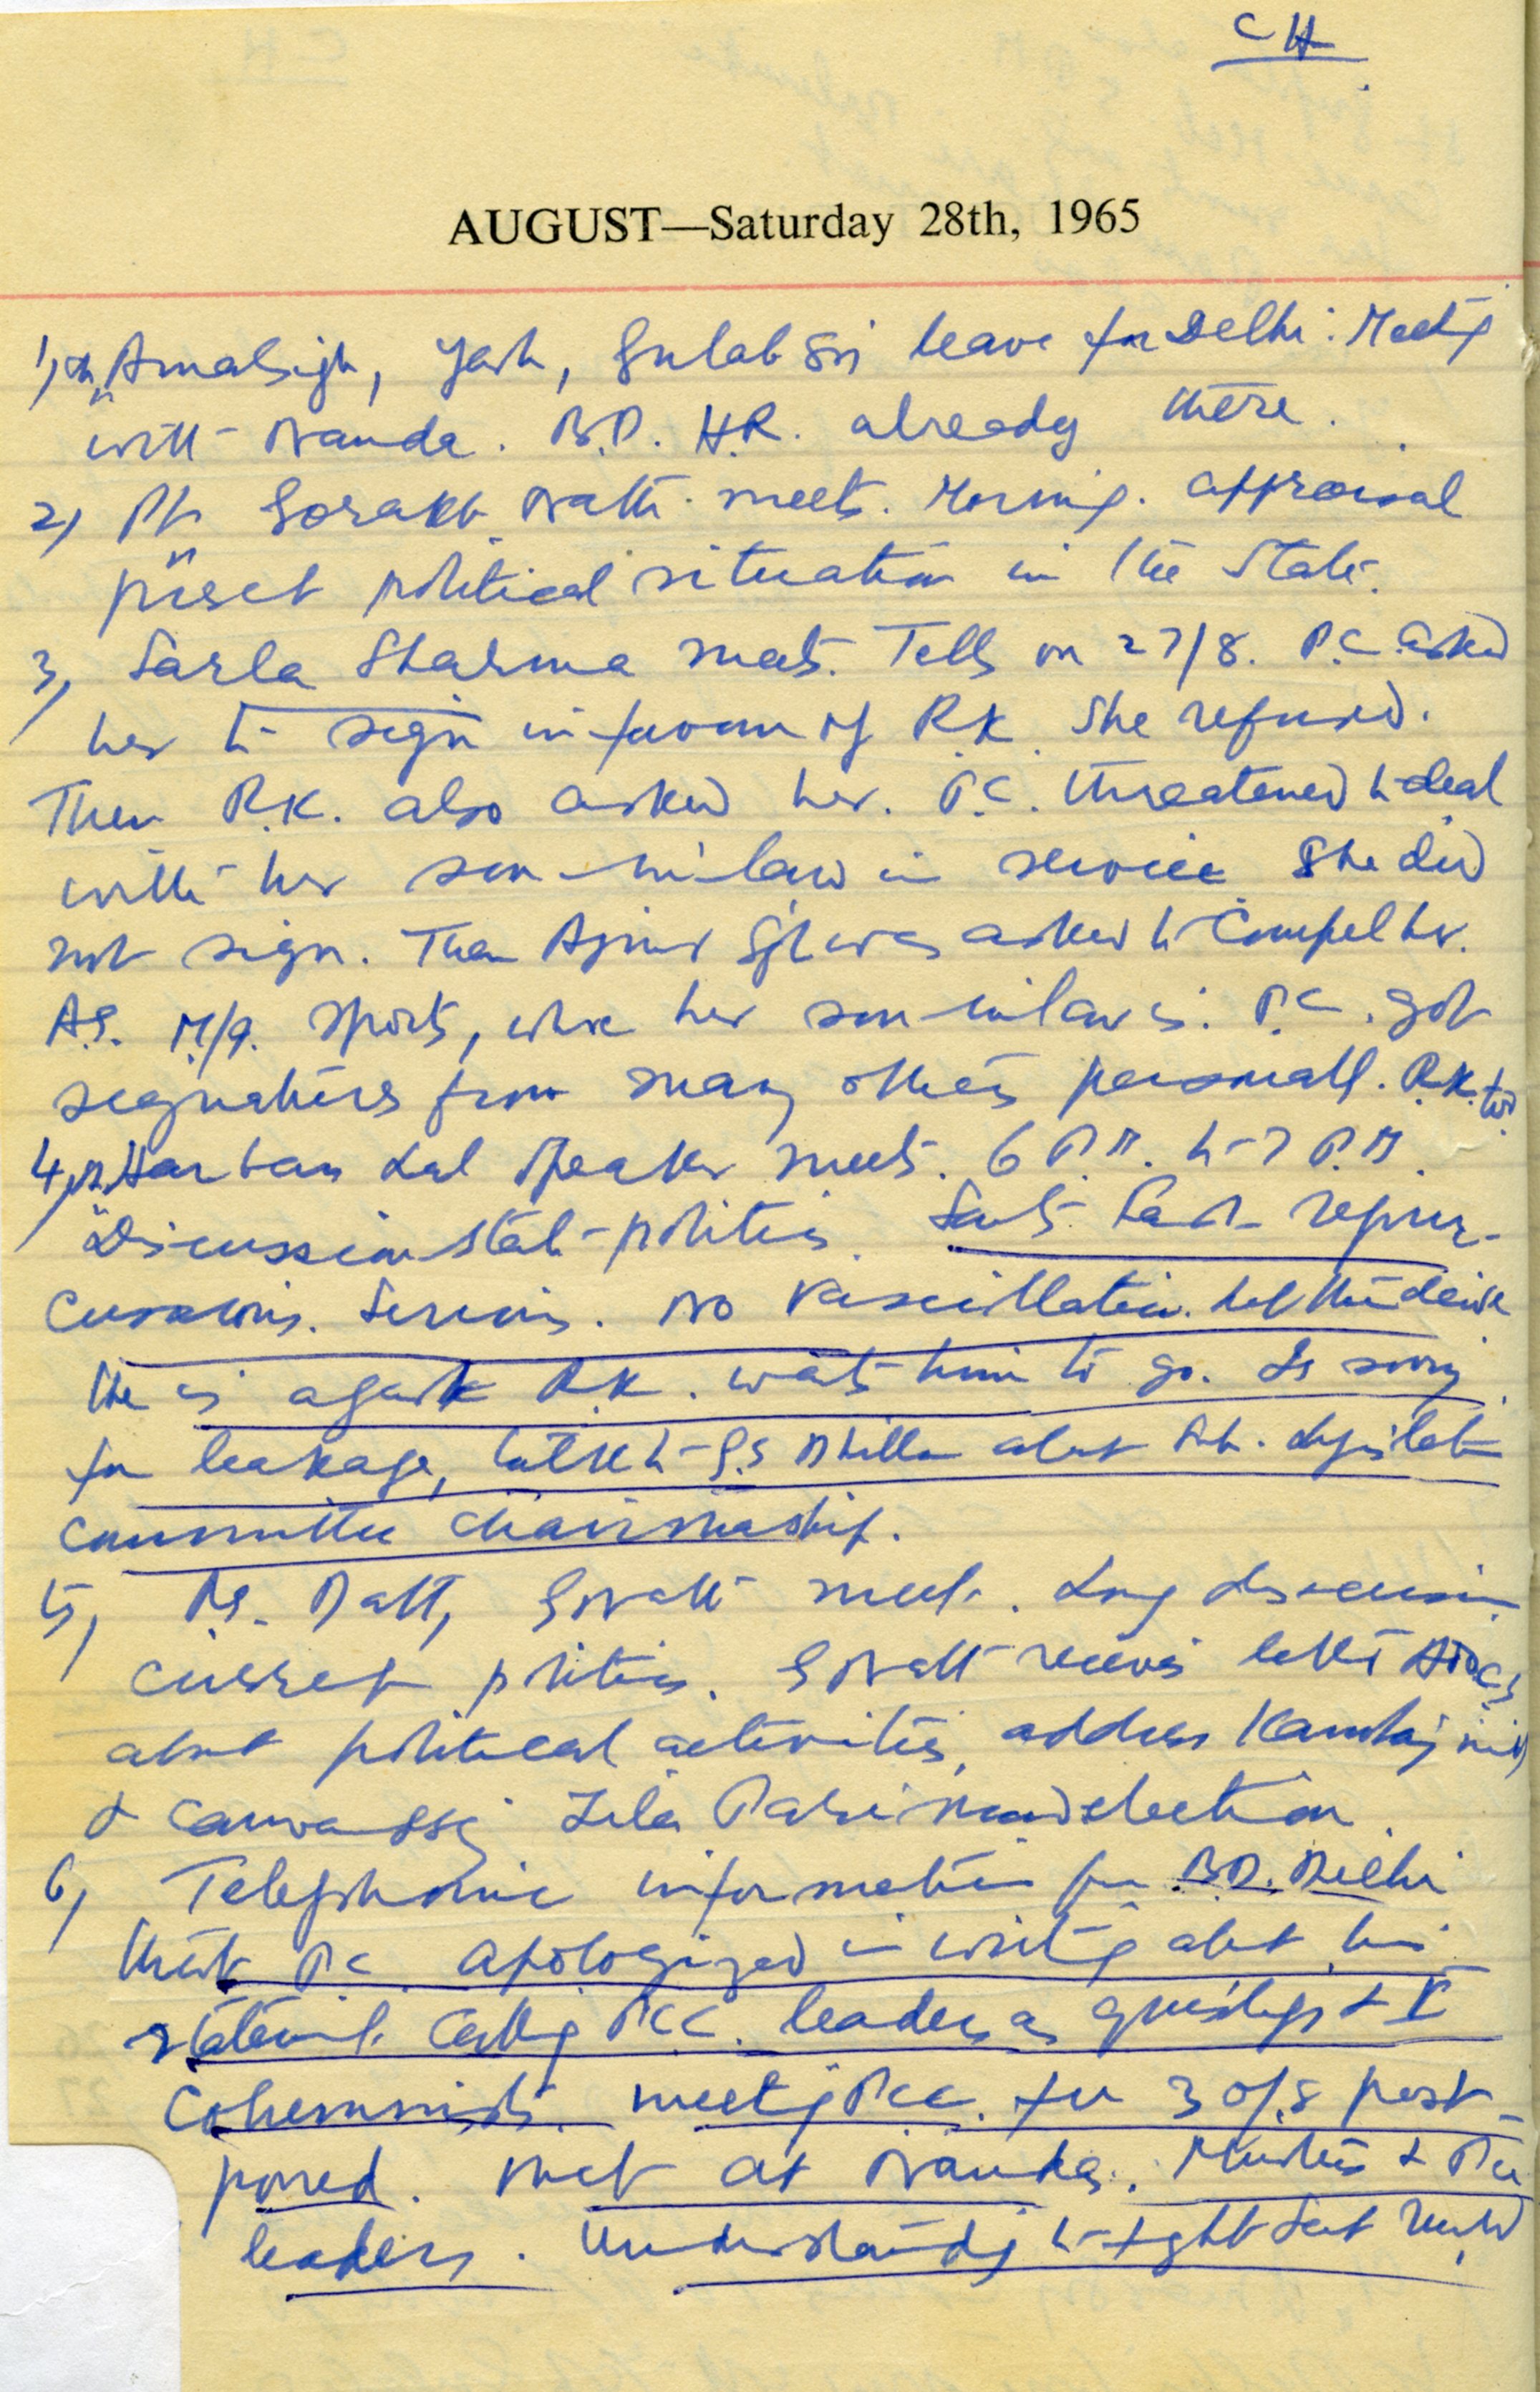 CH
AUGUST—Saturday 28th, 1965
1, Amarsigh, Yash, Gulab Sri leave for Delhi. Meetig
with Nanda. B.D. H.R. already there.
2, Pt Gorakh Nath meets. Morning. appraisal
preset political situation in the State.
3, Sarla Sharma meets. Tells on 27/8. P.C. asked
her to sign in favour of R.K. She refused.
Then R.K. also asked her. P.C. threatened to deal
with her son-in-law in service. She did
not sign. Then Ajmer Sgh was asked to Compel her.
A.S. M/q. sports, whre her son-in-law is. P.C. got
signatures from many others personall. R.K. too
4, Harbans Lal Speaker meets. 6 P.M. to 7 P.M.
Discussion state politics. Sant's Fast reper-
cussions. Serious. No Vascillation.
He is against R.K. wants him to go. Is sorry
for leakage, talk to G.S Dhillon about Sub. Legislat
Committee chairmanship.
5, Datt, G Nath meet. Long discussion
current politics. G Nath receives letter
about political activities, address Kamraj
& canvassig Zila Parishad election.
6, Telephonic information fm B.D. Delhi
that P.C. apologized in writig abt his
statemt. Callig P.C.C. leaders as quislings & V
Columnists. meetig PCC. for 30/8 post-
poned. met at Nanda. Ministers & Pcc
leaders. Understandig to fight Sant